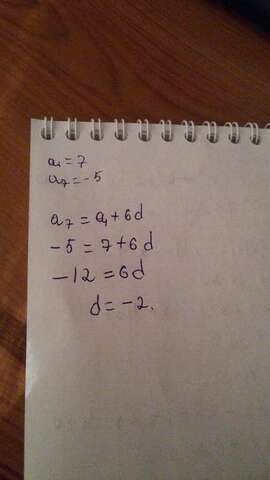 a₁ = 7
a₇ = -5
a₇ = a₁ + 6d
-5 = 7 + 6d
-12 = 6d
d = -2.